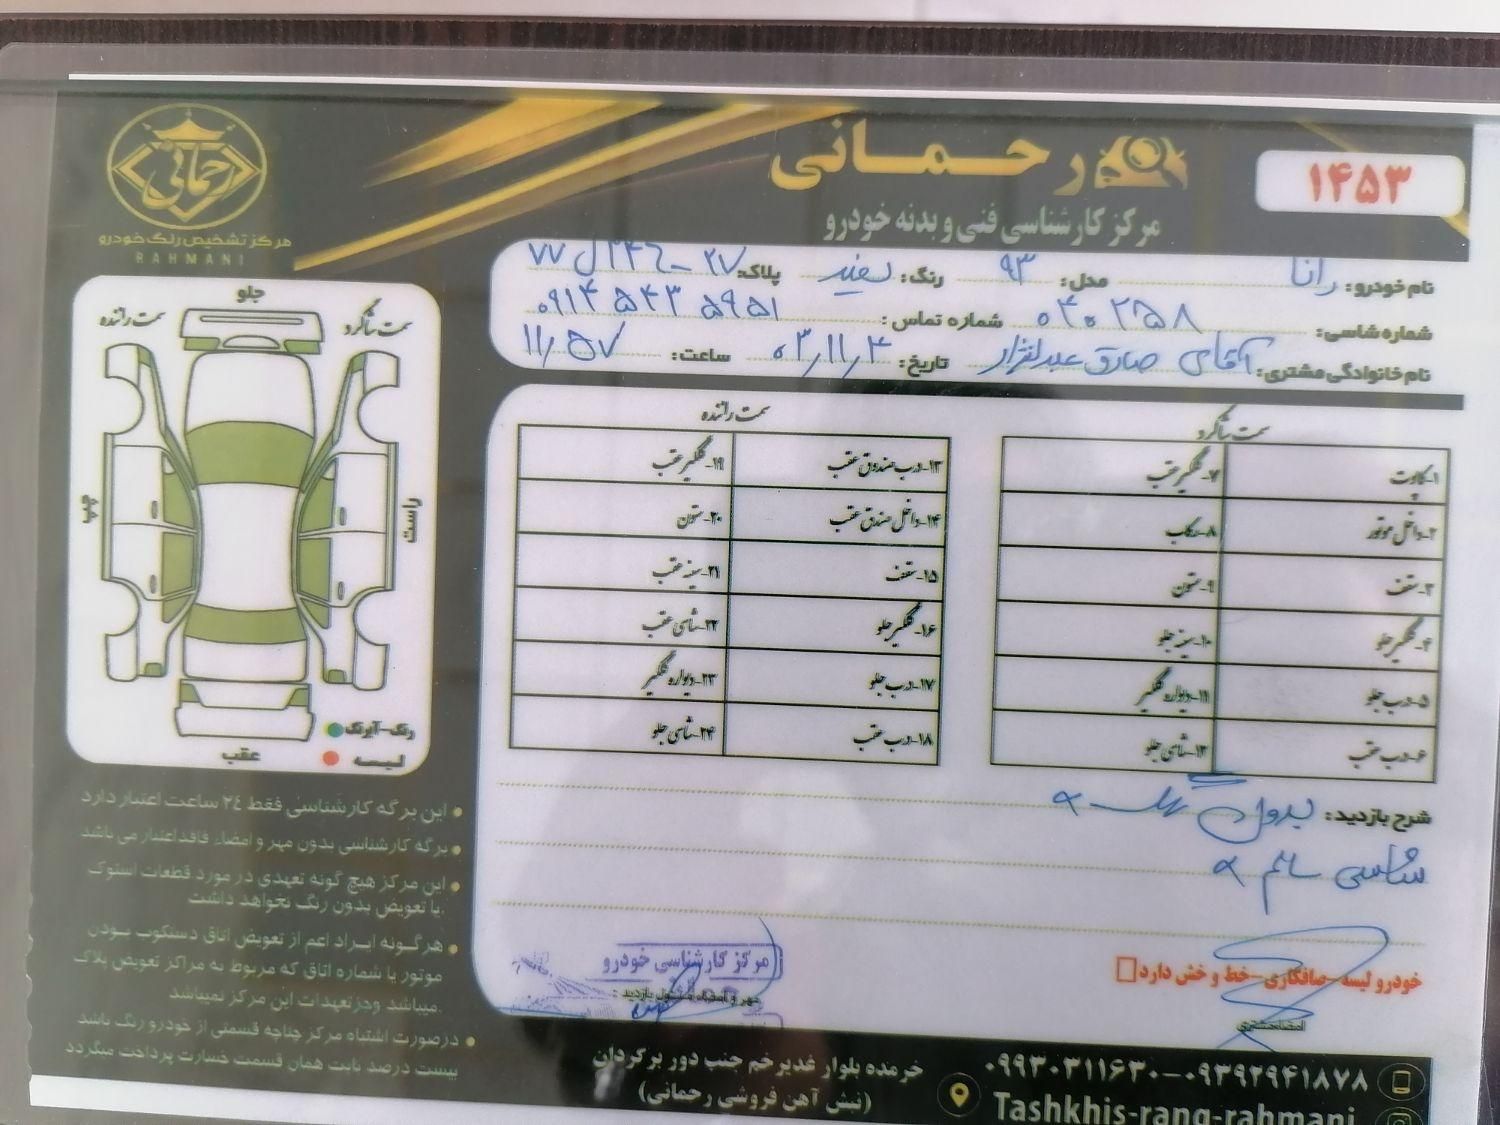 رحمانی
۱۴۵۳
مرکز کارشناسی فنی و بدنه خودرو
رحمانی
مرکز تشخیص رنگ خودرو
RAHMANI
نام خودرو: رانا مدل: ۹۳ رنگ: سفید پلاک: ۲۷-۲۴۶ل۷۷
شماره شاسی: ۰۴۰۲۵۸ شماره تماس: ۰۹۱۴۵۴۳۵۹۵۱
نام خانوادگی مشتری: آقای صادق تاریخ: ۰۳,۱۱,۴ ساعت: ۱۱,۵۷
سمت شاگرد
۱-کاپوت ۷-گلگیر عقب
۲-داخل موتور ۸-رکاب
۳-سقف ۹-ستون
۴-گلگیر جلو ۱۰-سینه جلو
۵-درب جلو ۱۱-دیواره گلگیر
۶-درب عقب ۱۲-شاسی جلو
سمت راننده
۱۳-درب صندوق عقب ۱۹-گلگیر عقب
۱۴-داخل صندوق عقب ۲۰-ستون
۱۵-سقف ۲۱-سینه عقب
۱۶-گلگیر جلو ۲۲-شاسی عقب
۱۷-درب جلو ۲۳-دیواره گلگیر
۱۸-درب عقب ۲۴-شاسی جلو
جلو
سمت شاگرد
سمت راننده
راست
چپ
عقب
رنگ-آبرنگ
لیسه
شرح بازدید: بدون
شاسی سالم
خودرو لیسه-صافکاری-خط و خش دارد
امضاء مشتری
مرکز کارشناسی خودرو
مهر و امضاء مسئول بازدید:
• این برگه کارشناسی فقط ۲۴ ساعت اعتبار دارد
• برگه کارشناسی بدون مهر و امضاء فاقد اعتبار می باشد
• این مرکز هیچ گونه تعهدی در مورد قطعات استوک
یا تعویض بدون رنگ نخواهد داشت.
• هرگونه ایراد اعم از تعویض اتاق دستکوب بودن
موتور یا شماره اتاق که مربوط به مراکز تعویض پلاک
میباشد وجز تعهدات این مرکز نمیباشد.
• درصورت اشتباه مرکز چنانچه قسمتی از خودرو رنگ باشد
بیست درصد بابت همان قسمت خسارت پرداخت میگردد
۰۹۹۳۰۳۱۱۶۳۰-۰۹۳۹۲۹۴۱۸۷۸
Tashkhis-rang-rahmani
خرمدره بلوار غدیرخم جنب دور برگردان
(نبش آهن فروشی رحمانی)